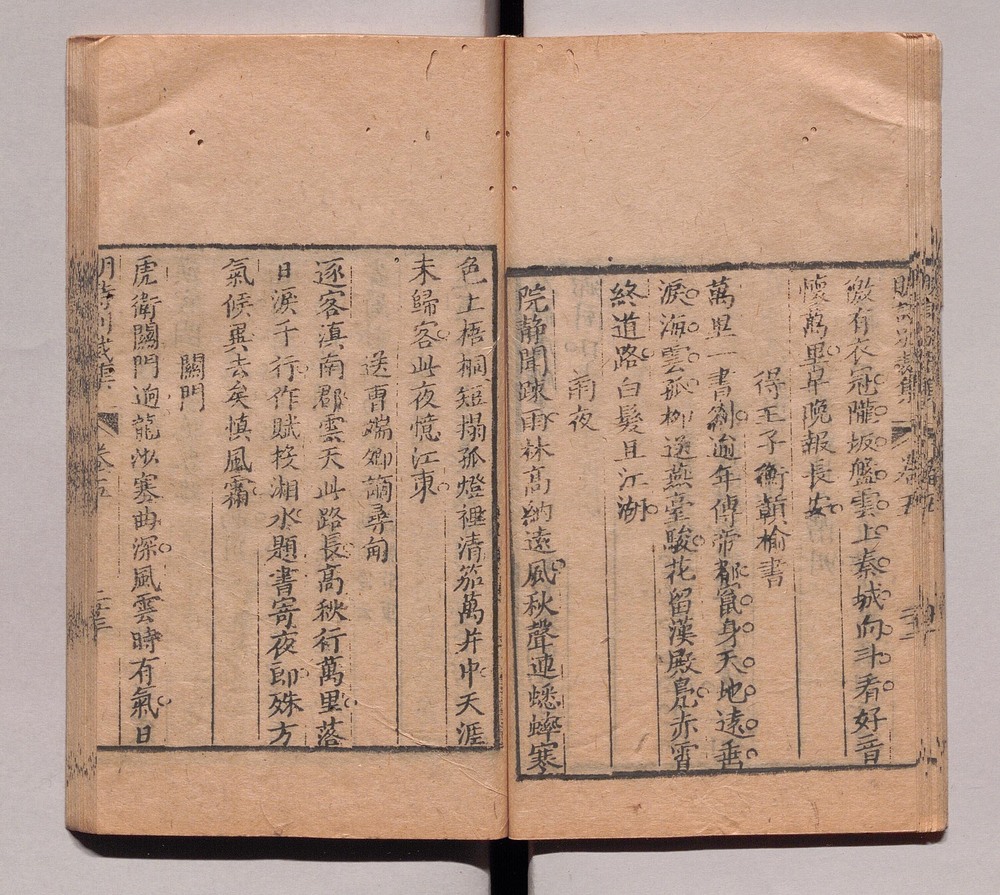 徼有衣冠隴坂盤雲上秦城向斗看好音
懷萬里早晚報長安
得王子衡贑榆書
萬里一書劄逾年傳帝都竄身天地遠垂
淚海雲孤柳送燕臺駿花留漢殿鳧赤霄
終道路白髮且江湖
雨夜
院靜聞踈雨林高納遠風秋聲連蟋蟀寒
色上梧桐短搨孤燈裡清笳萬井中天涯
未歸客此夜憶江東
送曹端卿謫尋甸
逐客滇南郡雲天此路長高秋行萬里落
日淚千行作賦投湘水題書寄夜郎殊方
氣候異去矣慎風霜
關門
虎衛關門迥龍沙塞曲深風雲時有氣日
卷五